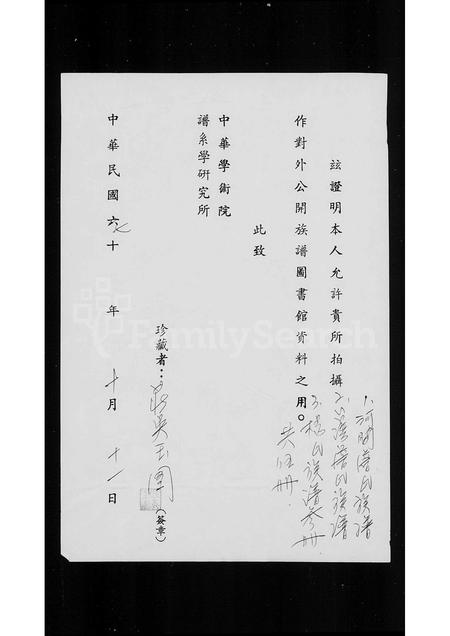 茲證明本人允許貴所拍攝
1.河間詹氏族譜
2.詹氏族譜
3.楊氏族譜參冊
共伍冊
作對外公開族譜圖書館資料之用。
此致
中華學術院
譜系學研究所
珍藏者：吳玉
（簽章）
中華民國六十七年十月十一日
FamilySearch